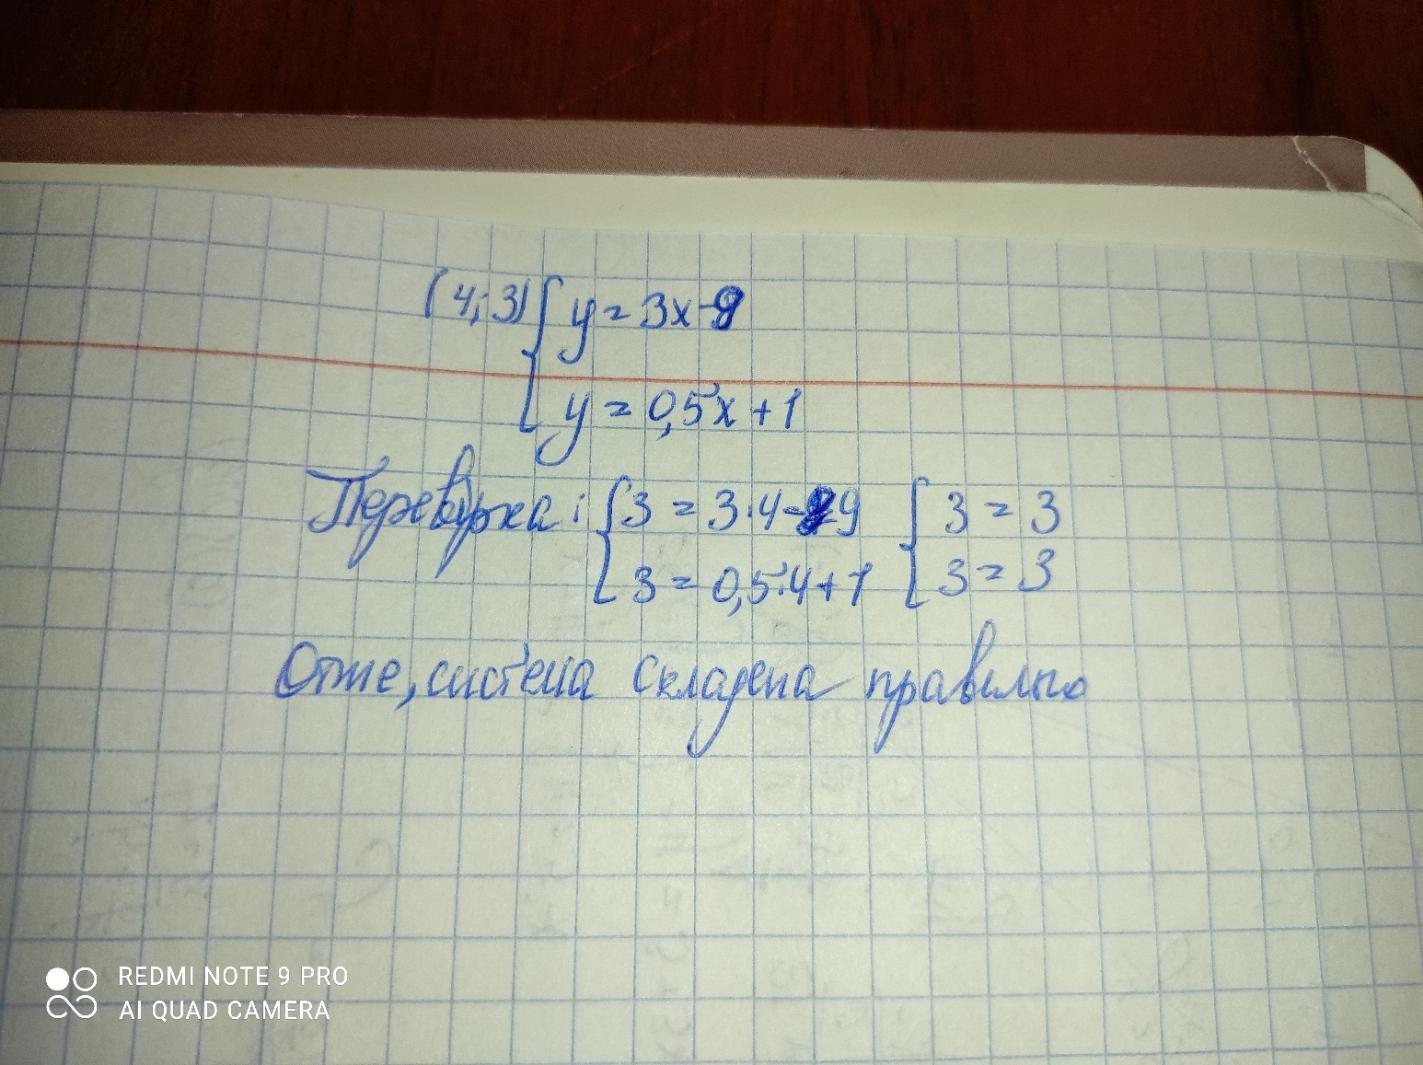 (4;3) { y = 3x-9
y = 0,5x + 1
Перевірка: { 3 = 3·4-9 { 3 = 3
3 = 0,5·4+1 3 = 3
Отже, система складена правильно
REDMI NOTE 9 PRO
AI QUAD CAMERA